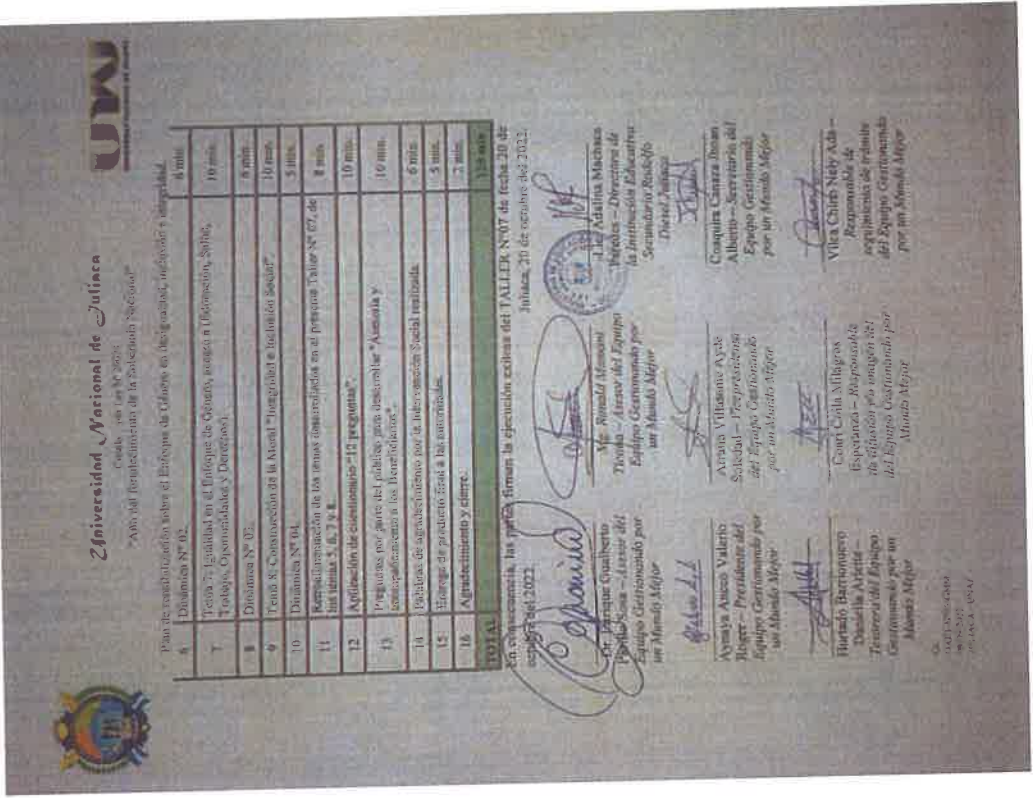 Universidad Nacional de Juliaca
Creada por Ley N° 29074
"Año del Fortalecimiento de la Soberanía Nacional"
UNAJ
Plan de sensibilización sobre el Enfoque de Género en desigualdad, inclusión e integridad
6 Dinámica N° 02. 6 min.
7 Tema 7: Igualdad en el Enfoque de Género, acceso a (Educación, Salud, 10 min.
Trabajo, Oportunidades y Derechos).
8 Dinámica N° 03. 6 min.
9 Tema 8: Construcción de la Moral "Integridad e Inclusión Social". 10 min.
10 Dinámica N° 04. 5 min.
11 Retroalimentación de los temas desarrollados en el presente Taller N° 07, de 8 min.
los temas 5, 6, 7 y 8.
12 Aplicación de cuestionario "12 preguntas". 10 min.
13 Preguntas por parte del público, para desarrollar "Asesoría y 10 min.
acompañamiento a los Beneficiarios".
14 Palabras de agradecimiento por la Intervención Social realizada 6 min.
15 Entrega de producto final a las autoridades. 5 min.
16 Agradecimiento y cierre. 2 min.
TOTAL min
En consecuencia, las partes firman la ejecución exitosa del TALLER N°07 de fecha 20 de
octubre del 2022
Juliaca, 20 de octubre del 2022.
Dr. Enrique Gualberto
Parillo Sosa – Asesor del
Equipo Gestionando por
un Mundo Mejor
Mg. Ronald Mamani
Ticona – Asesor del Equipo
Gestionando por
un Mundo Mejor
Lic. Adalina Machaca
Paredes – Directora de
la Institución Educativa
Secundaria Rodolfo
Diesel Juliaca
Aymaya Ancco Valerio
Roger – Presidente del
Equipo Gestionando por
un Mundo Mejor
Arana Villasante Ayde
Soledad – Vicepresidenta
del Equipo Gestionando
por un Mundo Mejor
Coaquira Canaza Jhoan
Alberto – Secretario del
Equipo Gestionando
por un Mundo Mejor
Hurtado Barrionuevo
Daniella Arlette –
Tesorera del Equipo
Gestionando por un
Mundo Mejor
Couri Coila Milagros
Esperanza – Responsable
de difusión y/o imagen del
del Equipo Gestionando por
Mundo Mejor
Vilca Chire Nely Ada –
Responsable de
seguimiento de trámite
del Equipo Gestionando
por un Mundo Mejor